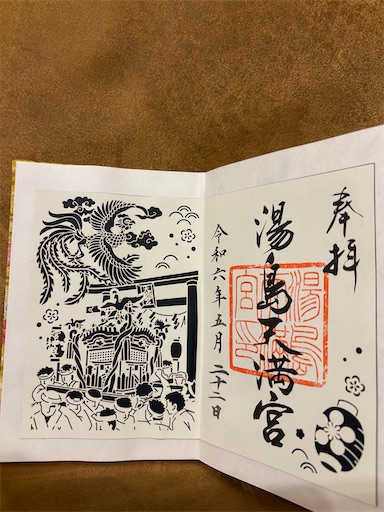 奉拝
湯島天満宮
令和六年五月二十二日